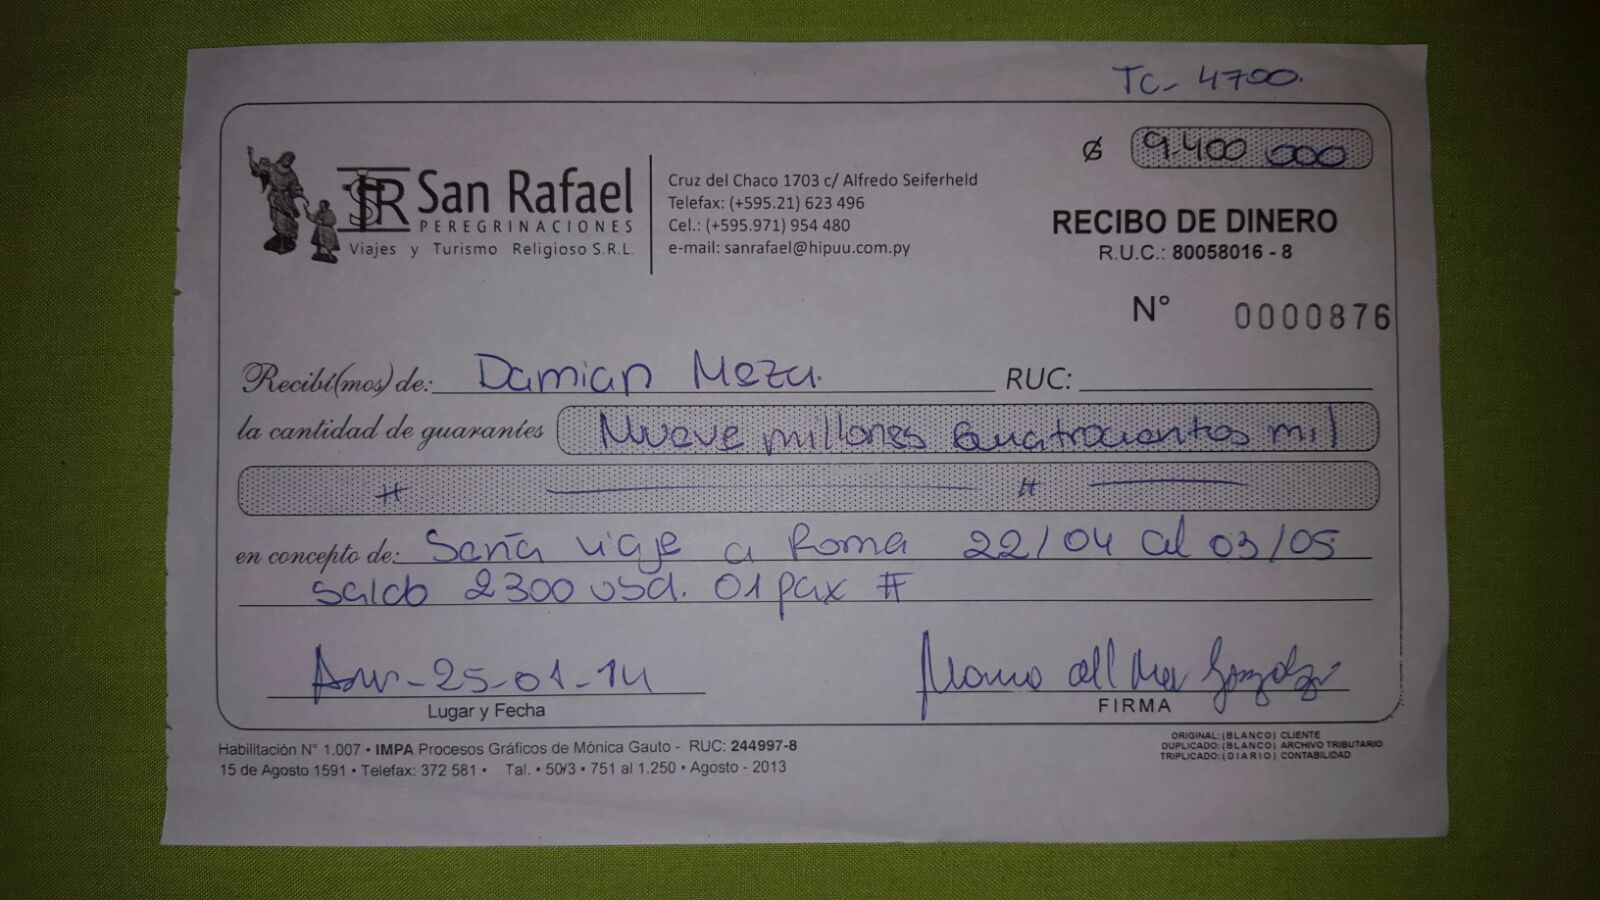 TC- 4700.
₲ 9.400 000
SR San Rafael
PEREGRINACIONES
Viajes y Turismo Religioso S.R.L.
Cruz del Chaco 1703 c/ Alfredo Seiferheld
Telefax: (+595.21) 623 496
Cel.: (+595.971) 954 480
e-mail: sanrafael@hipuu.com.py
RECIBO DE DINERO
R.U.C.: 80058016 - 8
N° 0000876
Recibí(mos) de: Damian Meza. RUC:
la cantidad de guaraníes Nueve millones Cuatrocientos mil
# #
en concepto de: Seña viaje a Roma 22/04 al 03/05
saldo 2300 usd. 01 pax #
25-01-14
Lugar y Fecha
Gonzalez
FIRMA
Habilitación N° 1.007 • IMPA Procesos Gráficos de Mónica Gauto - RUC: 244997-8
15 de Agosto 1591 • Telefax: 372 581 • Tal. • 50/3 • 751 al 1.250 • Agosto - 2013
ORIGINAL: (BLANCO) CLIENTE
DUPLICADO: (BLANCO) ARCHIVO TRIBUTARIO
TRIPLICADO: (DIARIO) CONTABILIDAD